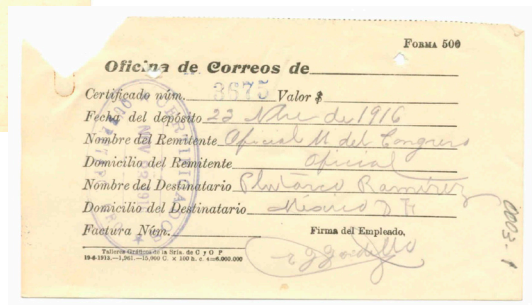 FORMA 500
Oficina de Correos de
Certificado núm. 3675 Valor $
Fecha del depósito 22 Nbre de 1916
Nombre del Remitente Oficial M del Congreso
Domicilio del Remitente Oficial
Nombre del Destinatario Plutarco Ramírez
Domicilio del Destinatario México D F
Factura Núm.
Firma del Empleado.
Talleres Gráficos de la Sría. de C y O P
CERTIFICADOS
NOV 22 1916
0003-1